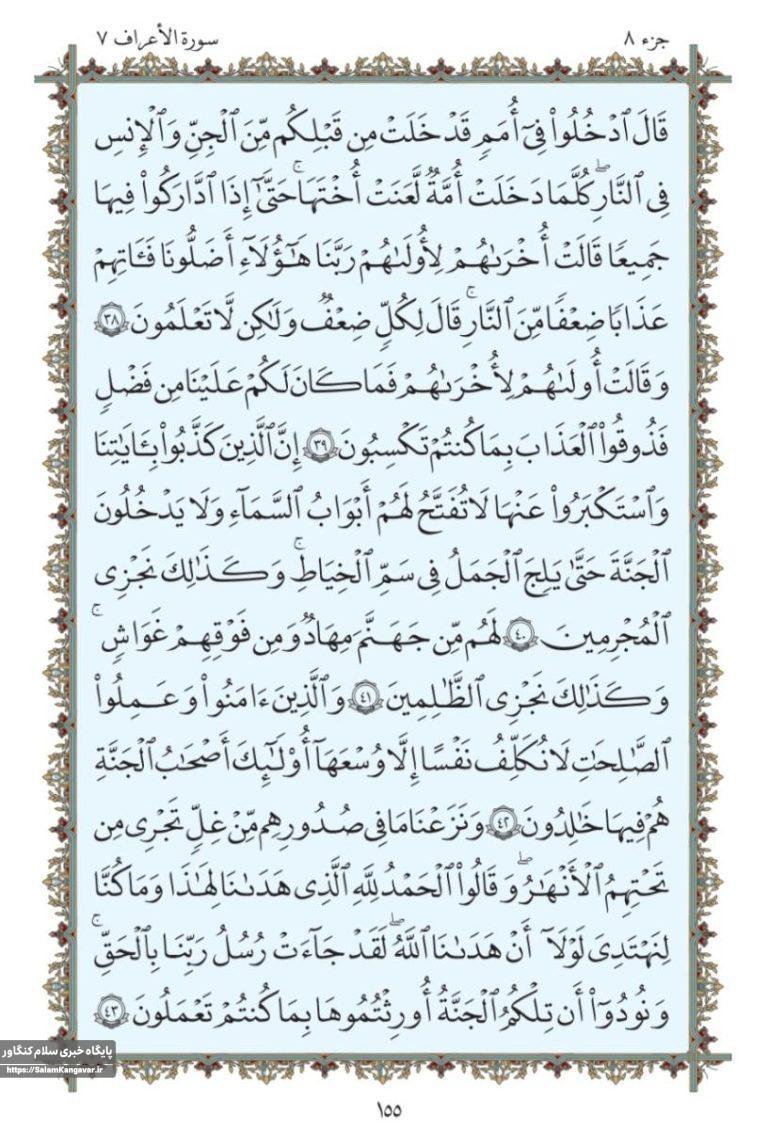 جزء ۸
سورة الأعراف ۷
قَالَ ٱدْخُلُوا۟ فِىٓ أُمَمٍ قَدْ خَلَتْ مِن قَبْلِكُم مِّنَ ٱلْجِنِّ وَٱلْإِنسِ
فِى ٱلنَّارِ ۖ كُلَّمَا دَخَلَتْ أُمَّةٌ لَّعَنَتْ أُخْتَهَا ۖ حَتَّىٰٓ إِذَا ٱدَّارَكُوا۟ فِيهَا
جَمِيعًا قَالَتْ أُخْرَىٰهُمْ لِأُولَىٰهُمْ رَبَّنَا هَـٰٓؤُلَآءِ أَضَلُّونَا فَـَٔاتِهِمْ
عَذَابًا ضِعْفًا مِّنَ ٱلنَّارِ ۖ قَالَ لِكُلٍّ ضِعْفٌ وَلَـٰكِن لَّا تَعْلَمُونَ ۳۸
وَقَالَتْ أُولَىٰهُمْ لِأُخْرَىٰهُمْ فَمَا كَانَ لَكُمْ عَلَيْنَا مِن فَضْلٍ
فَذُوقُوا۟ ٱلْعَذَابَ بِمَا كُنتُمْ تَكْسِبُونَ ۳۹ إِنَّ ٱلَّذِينَ كَذَّبُوا۟ بِـَٔايَـٰتِنَا
وَٱسْتَكْبَرُوا۟ عَنْهَا لَا تُفَتَّحُ لَهُمْ أَبْوَٰبُ ٱلسَّمَآءِ وَلَا يَدْخُلُونَ
ٱلْجَنَّةَ حَتَّىٰ يَلِجَ ٱلْجَمَلُ فِى سَمِّ ٱلْخِيَاطِ ۚ وَكَذَٰلِكَ نَجْزِى
ٱلْمُجْرِمِينَ ۴۰ لَهُم مِّن جَهَنَّمَ مِهَادٌ وَمِن فَوْقِهِمْ غَوَاشٍ ۚ
وَكَذَٰلِكَ نَجْزِى ٱلظَّـٰلِمِينَ ۴۱ وَٱلَّذِينَ ءَامَنُوا۟ وَعَمِلُوا۟
ٱلصَّـٰلِحَـٰتِ لَا نُكَلِّفُ نَفْسًا إِلَّا وُسْعَهَآ أُو۟لَـٰٓئِكَ أَصْحَـٰبُ ٱلْجَنَّةِ
هُمْ فِيهَا خَـٰلِدُونَ ۴۲ وَنَزَعْنَا مَا فِى صُدُورِهِم مِّنْ غِلٍّ تَجْرِى مِن
تَحْتِهِمُ ٱلْأَنْهَـٰرُ ۖ وَقَالُوا۟ ٱلْحَمْدُ لِلَّهِ ٱلَّذِى هَدَىٰنَا لِهَـٰذَا وَمَا كُنَّا
لِنَهْتَدِىَ لَوْلَآ أَنْ هَدَىٰنَا ٱللَّهُ ۖ لَقَدْ جَآءَتْ رُسُلُ رَبِّنَا بِٱلْحَقِّ ۖ
وَنُودُوٓا۟ أَن تِلْكُمُ ٱلْجَنَّةُ أُورِثْتُمُوهَا بِمَا كُنتُمْ تَعْمَلُونَ ۴۳
پایگاه خبری سلام کنگاور
https://SalamKangavar.ir
۱۵۵